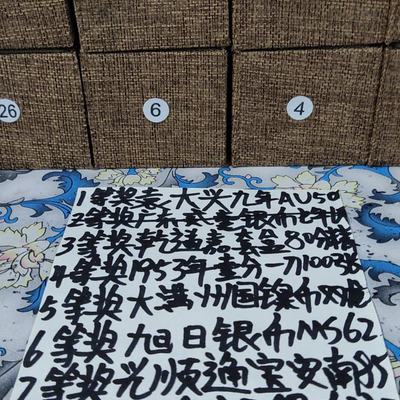 26
6
4
1等奖老大头九年AU50
2等奖广东武壹银币七年
3等奖乾通嘉套盒80分
4等奖1953年壹分一刀100张
5等奖大满州国镍币双龙
6等奖旭日银币MS62
7等奖光顺通宝安南85